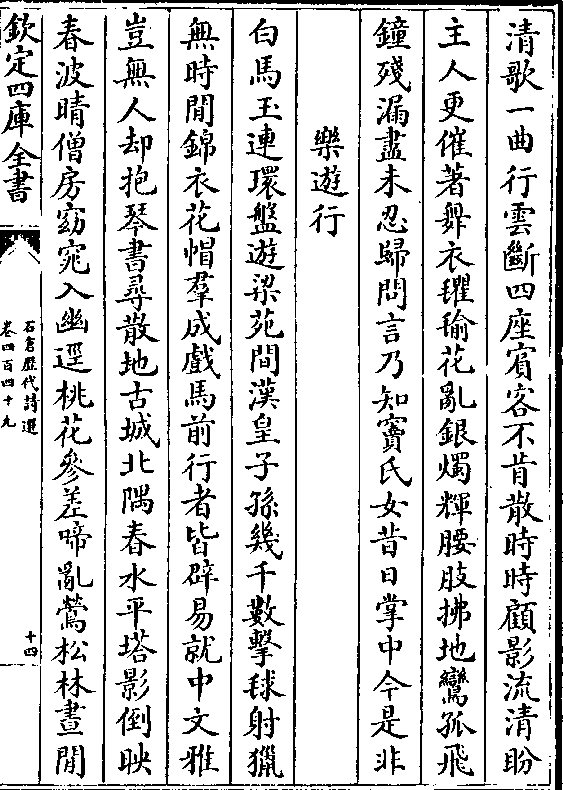 清歌一曲行雲斷四座賓客不肯散時時顧影流清盼
主人更催著舞衣㻿瑜花亂銀燭輝腰肢拂地鸞孤飛
鐘殘漏盡未忍歸問言乃知竇氏女昔日掌中今是非
樂遊行
白馬玉連環盤遊梁苑間漢皇子孫幾千數擊毬射獵
無時閒錦衣花帽羣成戲馬前行者皆辟易就中文雅
豈無人却抱琴書尋散地古城北隅春水平塔影倒映
春波晴僧房窈窕入幽逕桃花參差啼亂鶯松林晝閒
欽定四庫全書
石倉歷代詩選
卷四百四十九
十四